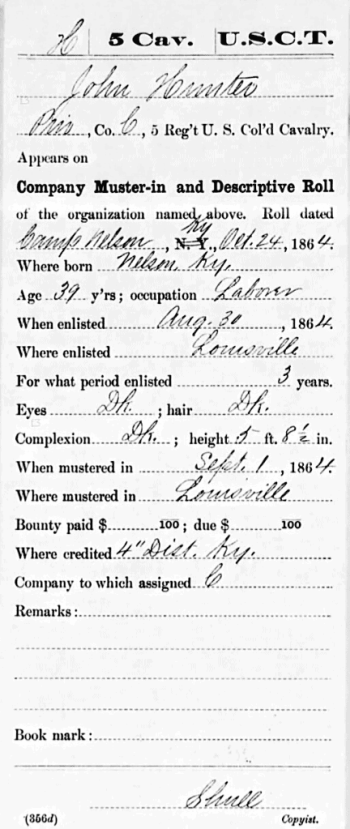 H | 5 Cav. | U.S.C.T.
John Hunter
Priv., Co. C, 5 Reg't U. S. Col'd Cavalry.
Appears on
Company Muster-in and Descriptive Roll
of the organization named above. Roll dated
Ky
Camp Nelson, N.Y., Oct. 24, 1864.
Where born Nelson, Ky.
Age 39 y'rs; occupation Laborer
When enlisted Aug. 30, 1864.
Where enlisted Louisville
For what period enlisted 3 years.
Eyes Dk.; hair Dk.
Complexion Dk.; height 5 ft. 8½ in.
When mustered in Sept. 1, 1864.
Where mustered in Louisville
Bounty paid $ 100; due $ 100
Where credited 4" Dist. Ky.
Company to which assigned C
Remarks:
Book mark:
Shull
(356d) Copyist.